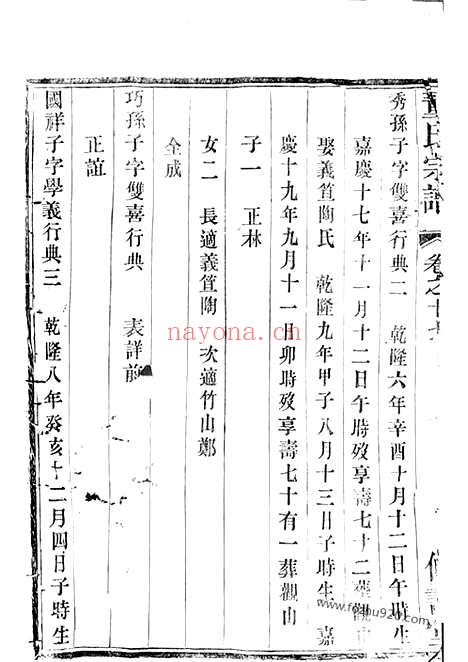 氏宗譜 卷之十
秀孫子字雙喜行典二 乾隆六年辛酉十月十二日午時生
嘉慶十七年十一月十二日午時歿享壽七十二葬觀山
娶義筫陶氏 乾隆九年甲子八月十三日子時生 嘉
慶十九年九月十一日卯時歿享壽七十有一葬觀山
子一 正林
女二 長適義筫陶 次適竹山鄭
全成
巧孫子字雙喜行典 表詳前
正誼
國祥子字學義行典三 乾隆八年癸亥十二月四日子時生
nayona.cn